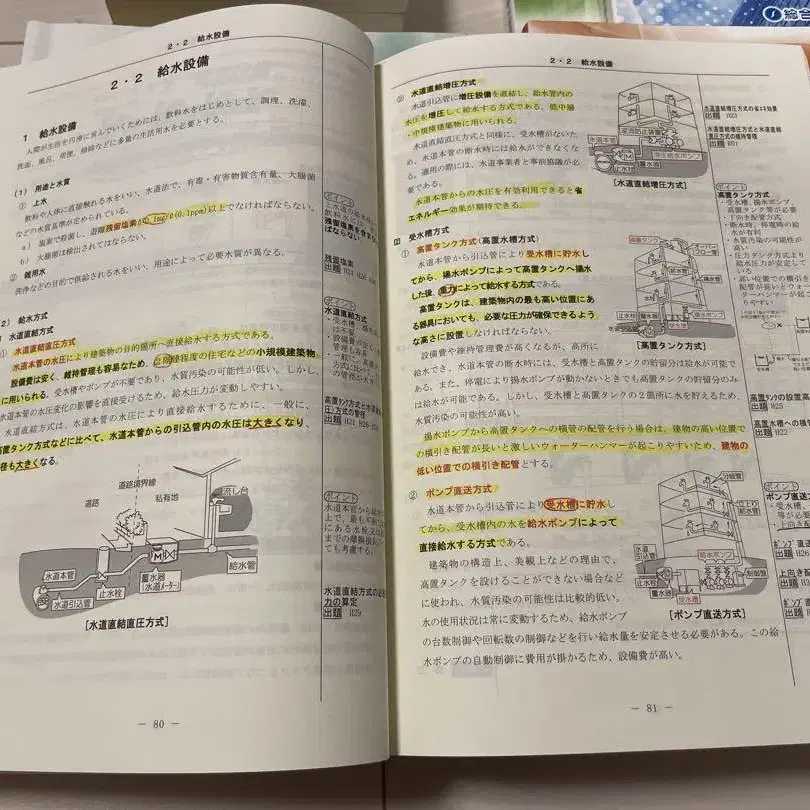 2・2 給水設備
2・2 給水設備
1 給水設備
人間が生活を円滑に営んでいくためには、飲料水をはじめとして、調理、洗濯、
洗面、風呂、用便、掃除などに多量の生活用水を必要とする。
(1) 用途と水質
① 上水
飲料や人体に直接触れる水をいい、水道法で、有毒・有害物質含有量、大腸菌
などの水質基準が定められている。
a) 塩素で殺菌し、遊離残留塩素が0.1mg/ℓ(0.1ppm)以上でなければならない。
b) 大腸菌は検出されてはならない。
② 雑用水
洗浄などの目的で供給される水をいい、用途によって必要水質が異なる。
2) 給水方式
水道直結方式
① 水道直結直圧方式
水道本管の水圧により建築物の目的箇所へ直接給水する方式である。
設備費は安く、維持管理も容易なため、2階建程度の住宅などの小規模建築物
に用いられる。受水槽やポンプが不要であり、水質汚染の可能性が低い。しかし、
水道本管の水圧変化の影響を直接受けるため、給水圧力が変動しやすい。
水道直結方式は、水道本管の水圧により直接給水するために、一般に、
高置タンク方式などに比べて、水道本管からの引込管内の水圧は大きくなり、
径も大きくなる。
道路境界線
道路
私有地
流し台
給水管
水道本管
止水栓
量水器
(水道メーター)
水道引込管
[水道直結直圧方式]
ポイント
残留塩素
出題 H21
ポイント
水道直結方式
・受水槽、
出題 H21
ポイント
水道本管から
上で、最も不
にある水栓
までの摩擦損
ても考慮する。
水道直結方式の
力の算定
出題 H29
- 80 -
2・2 給水設備
② 水道直結増圧方式
水道引込管に増圧設備を直結し、給水管内の
水圧を増圧して給水する方式である。低中層
・中規模建築物に用いられる。
水道直結直圧方式と同様に、受水槽がないた
め、水道本管の断水時には給水ができなくな
る。適用の際には、水道事業者と事前協議が必
要である。
水道本管からの水圧を有効利用できると省
エネルギー効果が期待できる。
逆流防止装置
水道本管
止水栓
増圧給水ポンプ
量水器
[水道直結増圧方式]
水道直結増圧方式の省エネ効果
出題 H23
水道直結増圧方式と水道直結
直圧方式の維持管理
出題 R01
Ⅲ 受水槽方式
① 高置タンク方式(高置水槽方式)
水道本管から引込管により受水槽に貯水し
てから、揚水ポンプによって高置タンクへ揚水
した後、重力によって給水する方式である。
高置タンクは、建築物内の最も高い位置にあ
る器具においても、必要な圧力が確保できるよう
な高さに設置しなければならない。
設備費や維持管理費が高くなるが、高所に
給水でき、水道本管の断水時には、受水槽と高置タンクの貯留分は給水が可能で
ある。また、停電により揚水ポンプが動かないときでも高置タンクの貯留分のみ
は給水が可能である。しかし、受水槽と高置タンクの2箇所に水を貯えるため、
水質汚染の可能性が高い。
揚水ポンプから高置タンクへの横管の配管を行う場合は、建物の高い位置で
の横引き配管が長いと激しいウォーターハンマーが起こりやすいため、建物の
低い位置での横引き配管とする。
高置タンク
オーバー
フロー管
給水管
揚水管
止水栓
量水器
[高置タンク方式]
ポイント
高置タンク方式
・受水槽、揚水ポンプ、
高置タンク等が必要
・下向き配管方式
・断水時、停電時の給
水が有利
・水質汚染の可能性が
高い
・圧力タンク方式より
給水圧力が安定して
いる
・高い位置での横引き
配管が長いとウォー
ターハンマーが起こ
りやすい
高置タンクの設置高
出題 H25
高置水槽への横
出題 H22
② ポンプ直送方式
水道本管から引込管により受水槽に貯水し
てから、受水槽内の水を給水ポンプによって
直接給水する方式である。
建築物の構造上、美観上などの理由で、
高置タンクを設けることができない場合など
に使われ、水質汚染の可能性は比較的低い。
水の使用状況は常に変動するため、給水ポンプ
の台数制御や回転数の制御などを行い給水量を安定させる必要がある。この給
水ポンプの自動制御に費用が掛かるため、設備費が高い。
分岐管
立上り
給水管
給水ポンプ
水道
引込管
止水栓
量水器
受水槽
制御盤
[ポンプ直送方式]
ポイント
ポンプ直
・受水槽、
等が必要
・上向き
出題 H26
上向き配
出題
出題
- 81 -
総合